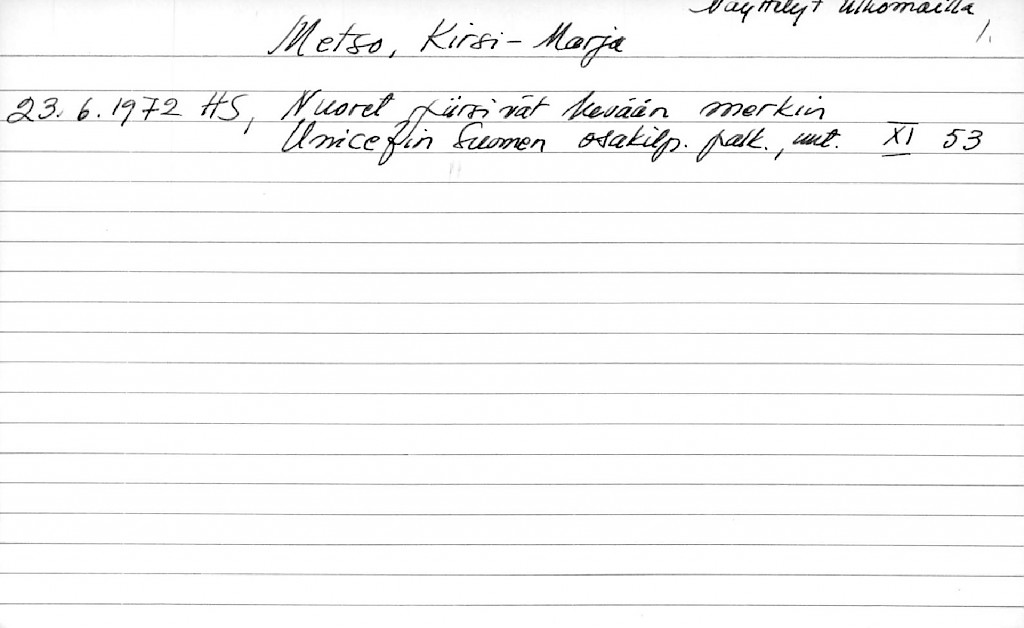 Näyttelyt ulkomailla
1.
Metso, Kirsi-Marja
23.6.1972 HS, Nuoret piirsivät kevään merkin
Unicefin Suomen osakilp. palk., uut. XI 53